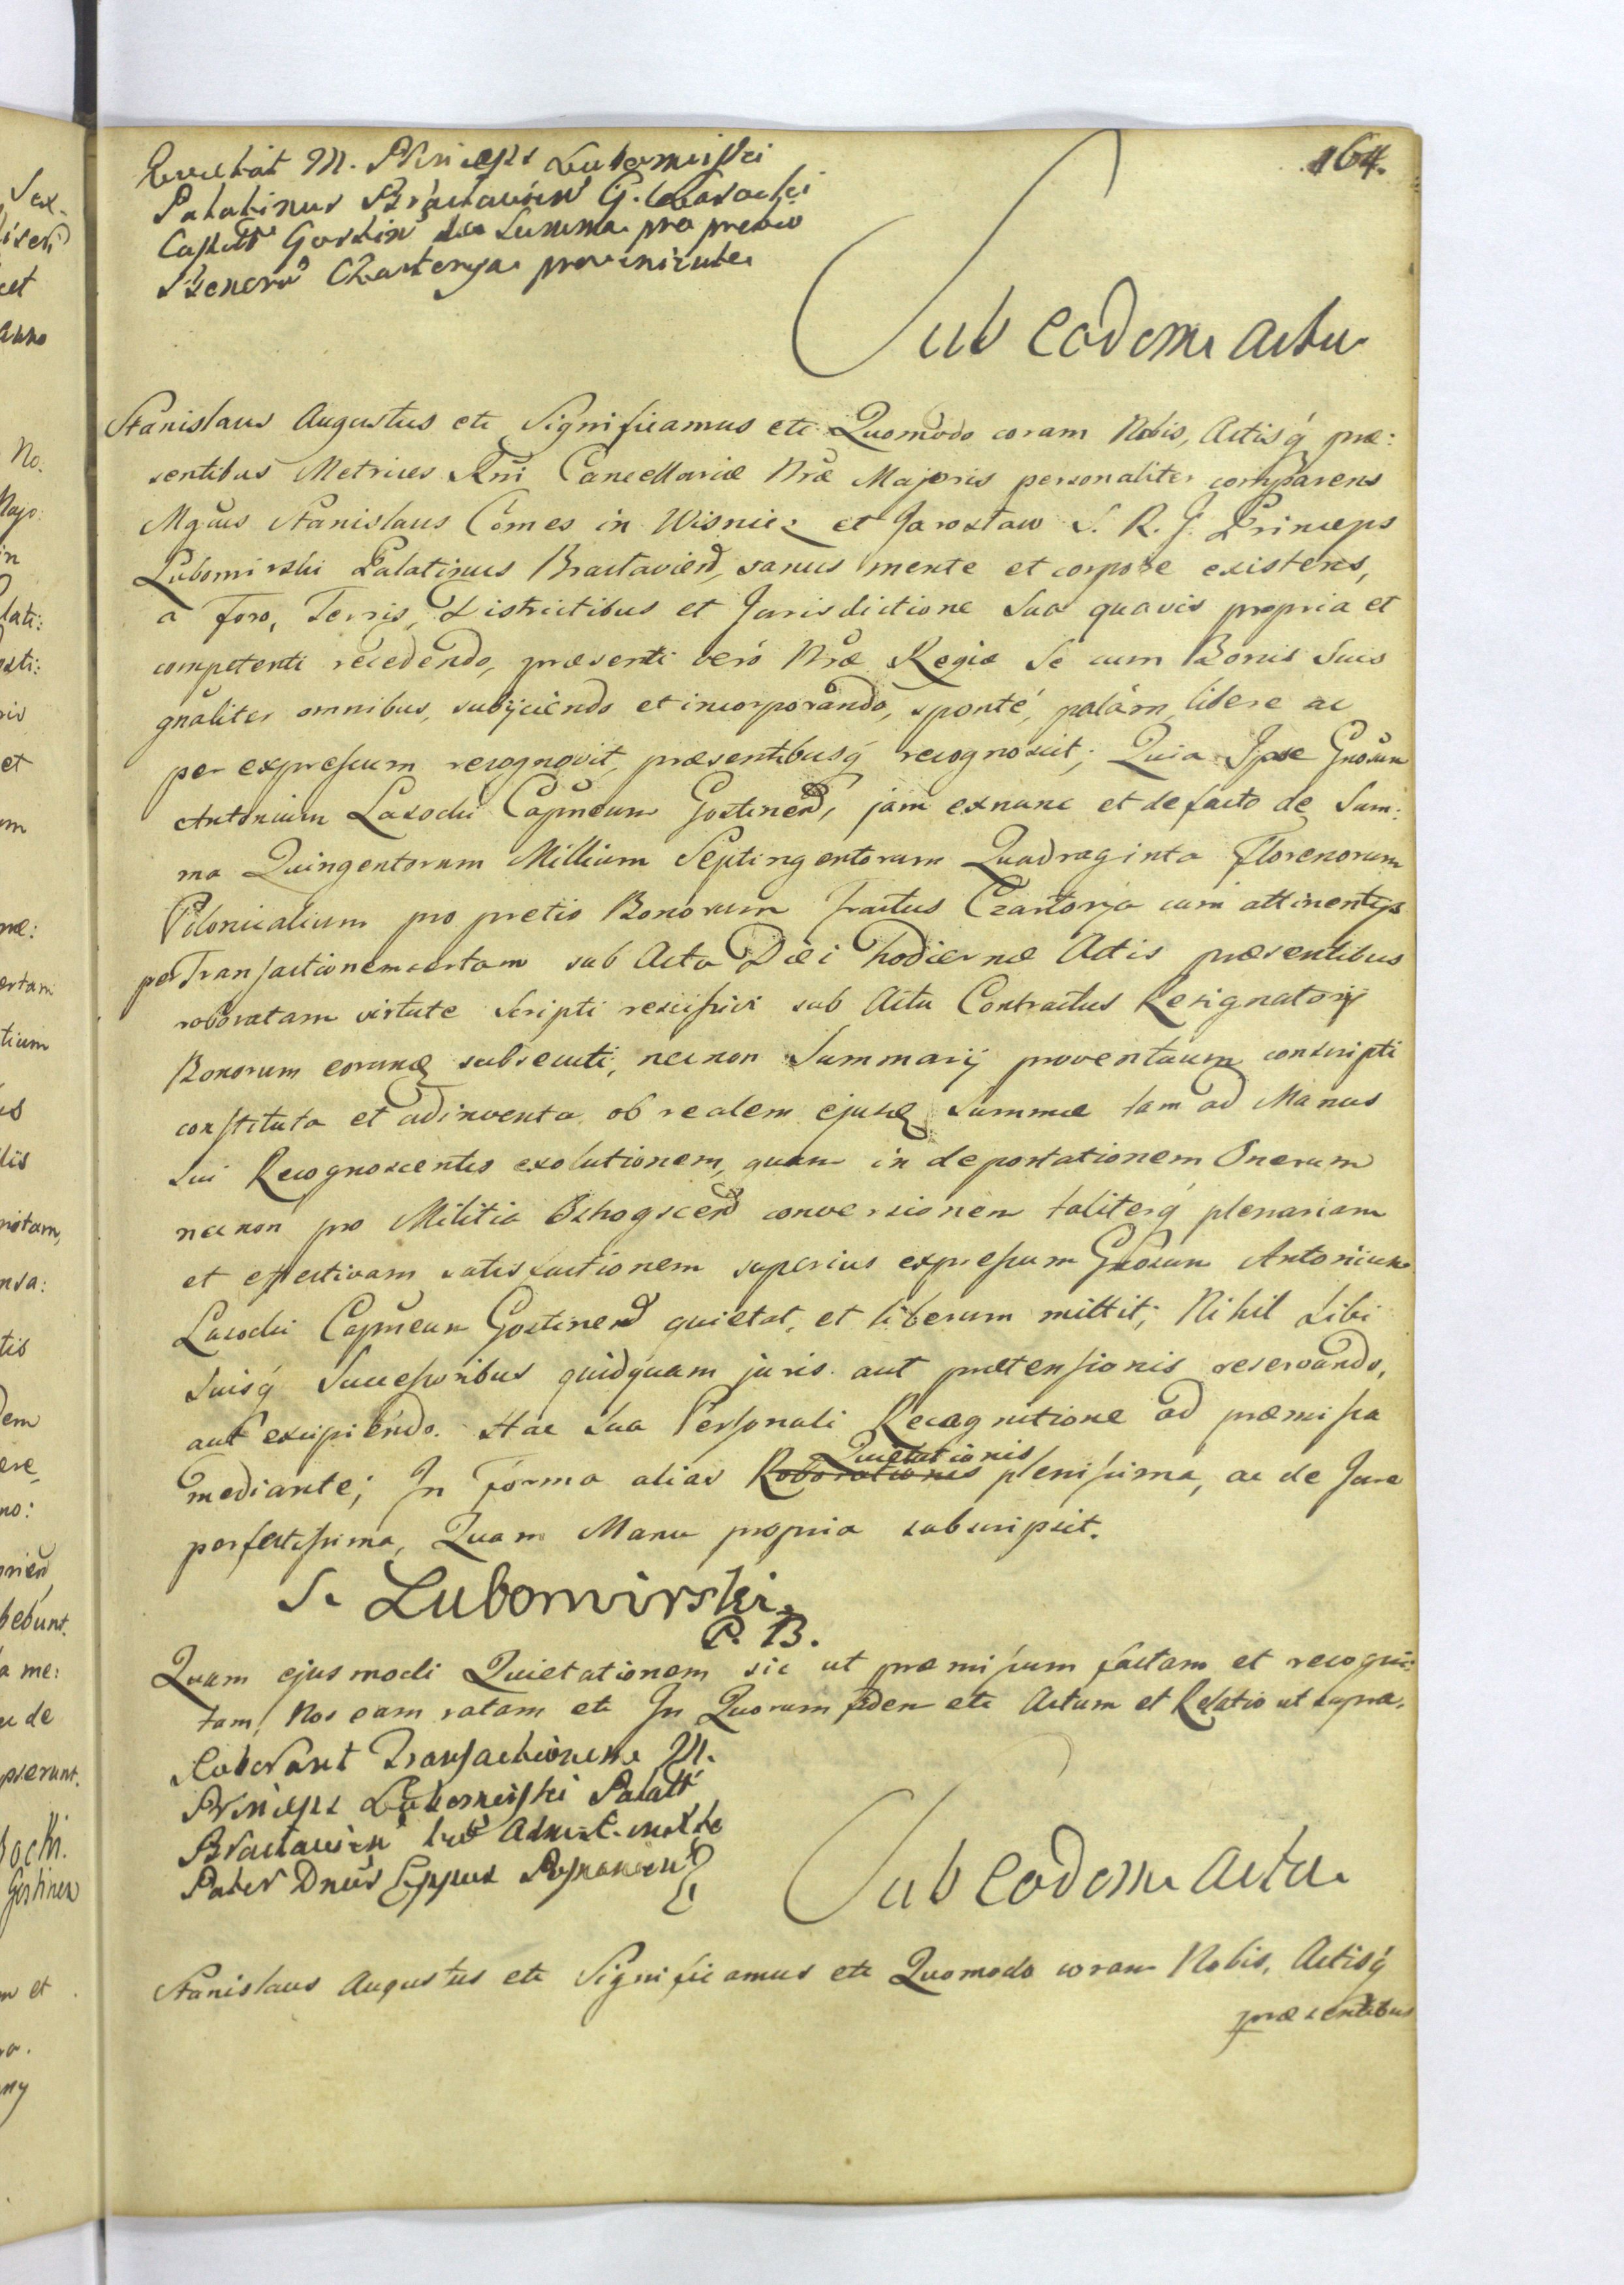 164.
Quietat M. Princeps Lubomirski
Palatinus Braclavien G. Lasocki
Castell Gostin de Summa pro pretio
Bonorũ Czartorya proveniente
Sub eodem actu
Stanislaus Augustus etc Significamus etc Quomodo coram Nobis, Actisq́ præ:
sentibus Metrices Rñi Cancellariæ Nræ Majoris personaliter comparens
Mgũus Stanislaus Comes in Wisnicz et Jarosław S. R. J. Princeps
Lubomirski Palatinus Braclavień, sanus mente et corpore existens,
a Foro, Terris, Districtibus et Jurisdictione Sua quavis propria et
competenti recedendo, præsenti verò Nræ Regiæ Se cum Bonis Suis
gnãliter omnibus, subijciendo et incorporando, sponté, palàm, libere ac
per expressum recognovit, præsentibusq́ recognoscit; Quia Ipse Gnõsum
Antonium Lasocki Capñeum Gostineń, jam exnunc et de facto de Sum:
ma Quingentorum Millium Septingentorum Quadraginta Florenorum
Polonicalium pro pretio Bonorum Tractus Czartorya cum attinentijs
per Transactionem certam sub Actu Diei hodiernæ Actis præsentibus
roboratam virtute Scripti rescissivi sub Actu Contractus Resignatorij
Bonorum eorundę subsecuti, necnon Summarij proventuum conscripti
constituta et adinventa, ob realem ejusdę Summæ tam ad Manus
Sui Recognoscentis exolutionem, quam in deportationem Onerum
necnon pro Militia Ostrogsceń conversionem taliterq́ plenariam
et effectivam satisfactionem superius expressum Gnõsum Antonium
Lasocki Capñeum Gostineń quietat, et liberum mittit; Nihil Sibi
Suisq́ Successoribus quidquam juris aut prætensionis reservando,
aut excipiendo. Hac Sua Personali Recognitione ad præmissa
mediante; In Forma alias Roborationis Quietationis plenissima, ac de Jure
perfectissima, Quam Manu propria subscripsit.
S. Lubomirski
P. B.
Quam ejusmodi Quietationem sic ut præmissum factam et recogni:
tam, Nos eam ratam etc In Quorum fidem etc Actum et Relatio ut supra.
Roborant Transactionem M.
Princeps Lubomirski Palatt
Braclavien
Pater Dnũs Eppus Posnanien
Sub eodem actu
Stanislaus Augustus etc Significamus etc Quomodo coram Nobis, Actisq́
præsentibus